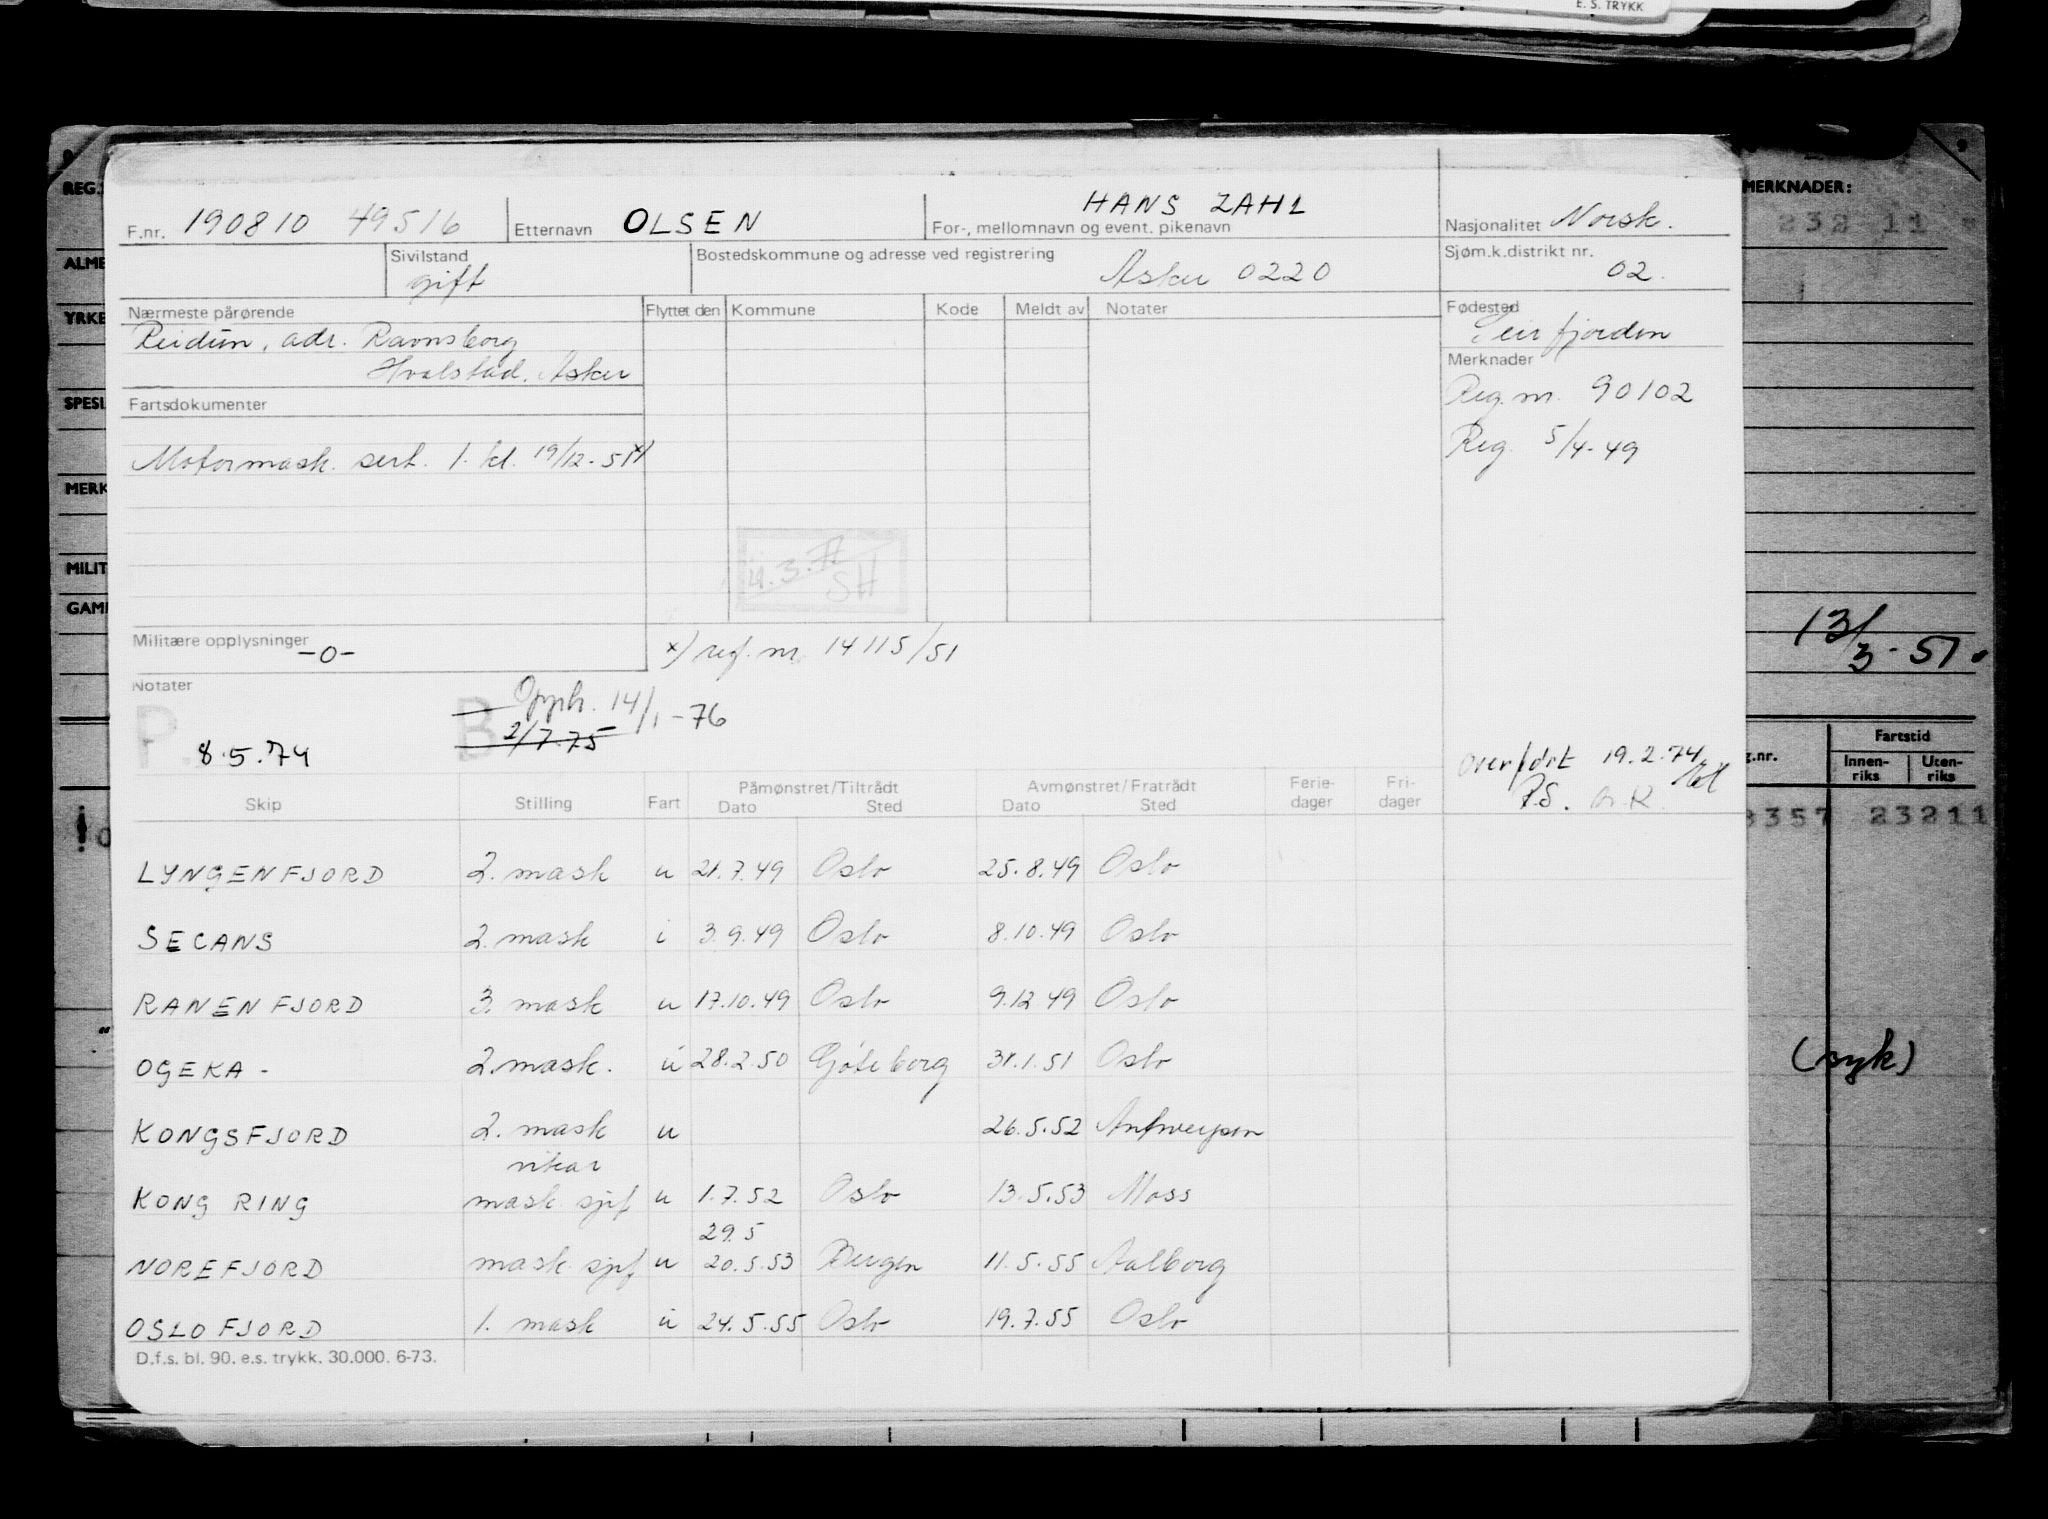 E. S. TRYKK
REG.
MERKNADER:
232 11
F.nr. 190810 49516
Etternavn OLSEN
HANS ZAHL
For-, mellomnavn og event. pikenavn
Nasjonalitet Norsk.
ALME
Sivilstand
gift
Bostedskommune og adresse ved registrering
Asker 0220
Sjøm.k.distrikt nr.
02.
YRKE
Nærmeste pårørende
Flyttet den Kommune Kode Meldt av Notater
Fødested
Leirfjorden
Reidun, adr. Ravnsborg
Hvalstad, Asker
Merknader
Reg.nr. 90102
SPESI
Fartsdokumenter
Reg. 5/4-49
Motormask. sert. 1. kl. 19/12-51 x)
MERK
MILIT
4.3.77
SH
GAM
13/3-51.
Militære opplysninger
-0-
x) ref. nr. 14115/51
Notater
P. 8.5.74
B Opph. 14/1-76
2/7.75
Overført 19.2.74
P.S.
g.nr.
Fartstid
Innen-riks
Uten-riks
3357 23211
Skip Stilling Fart Påmønstret/Tiltrådt Avmønstret/Fratrådt Ferie-dager Fri-dager
Dato Sted Dato Sted
LYNGENFJORD 2. mask u 21.7.49 Oslo 25.8.49 Oslo
SECANS 2. mask i 3.9.49 Oslo 8.10.49 Oslo
RANENFJORD 3. mask u 17.10.49 Oslo 9.12 49 Oslo
OGEKA - 2. mask. u 28.2.50 Göteborg 31.1.51 Oslo
(syk)
KONGSFJORD 2. mask u 26.5.52 Antwerpen
vikar
KONG RING mask sjef u 1.7.52 Oslo 13.5.53 Moss
29.5
NOREFJORD mask. sjef u 20.5.53 Bergen 11.5.55 Aalborg
OSLOFJORD 1. mask u 24.5.55 Oslo 19.7.55 Oslo
D.f.s. bl. 90. e.s. trykk. 30.000. 6-73.